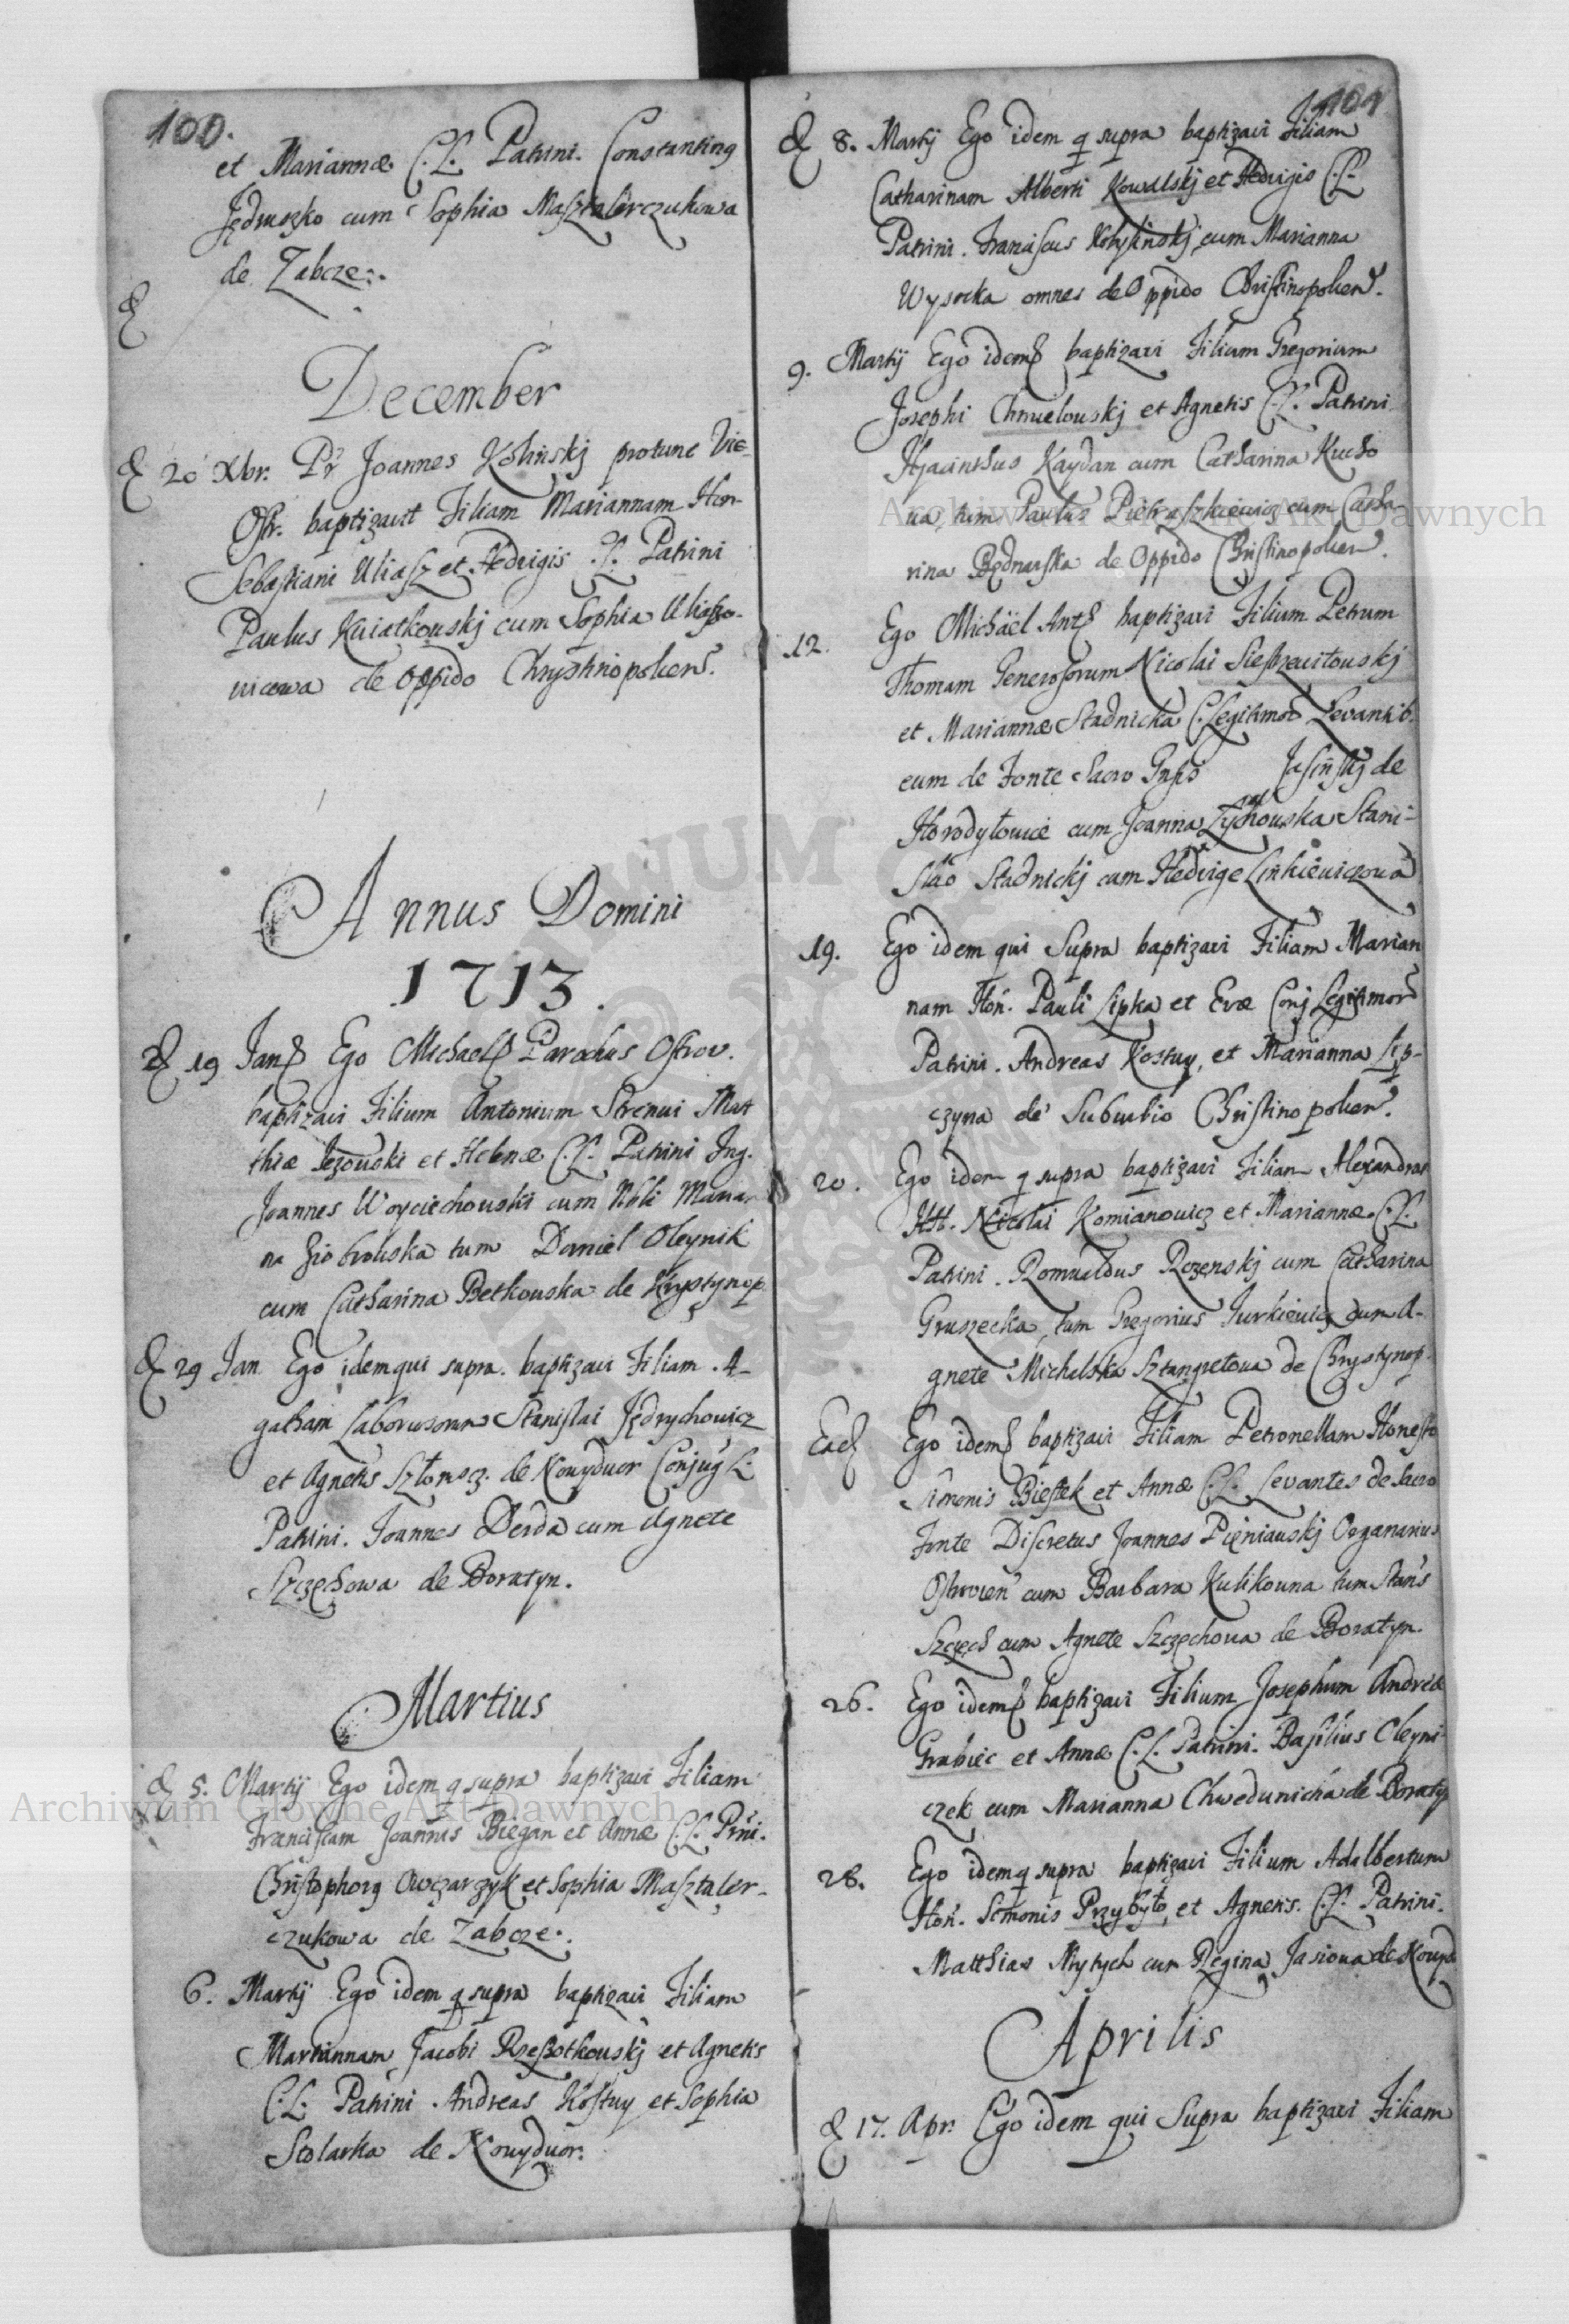 100.
et Mariannæ C.L. Patrini. Constanting
Jędruszko cum Sophia Masztalerczukowa
de Zabcze.
December
20 Xbr. Pr Joannes Koliński protunc Vic-
Ostr. baptizavit Filiam Mariannam Hon-
Sebastiani Uliasz et Hedvigis C.L. Patrini
Paulus Kwiatkouskj cum Sophia Uliaszo-
wicowa de Oppido Chrystinopolien.
Annus Domini
1713.
19 Jan Ego Michael Parochus Ostrov.
baptizavi Filium Antonium Strenui Mat
thiæ Jezouski et Helenæ C.L. Patrini Ing.
Joannes Woyciechouski cum Nbli Marian-
na Ziobrouska tum Daniel Oleynik
cum Catharina Betkouska de Krystynop
29 Jan Ego idem qui supra. baptizavi Filiam A-
gatham Laboriosorum Stanislai Jędrychowicz
et Agnetis de Nouyduor Conjug L.
Patrini. Joannes Derda cum Agnete
Szczęchowa de Boratyn.
Martius
5. Martij Ego idem q supra baptizavi Filiam
Franciscam Joannis Biegan et Annæ C.L. Prni.
Christophorg Owczarzyk et Sophia Masztaler-
czukowa de Zabcze.
6. Martij Ego idem q supra baptizavi Filiam
Mariannam Jacobi Rzeszotkouskj et Agnetis
C.L. Patrini Andreas Kostuy et Sophia
Stolarka de Nouyduor.
101
8. Martij Ego idem q supra baptizavi Filiam
Catharinam Alberti Kowalskj et Hedvigis C.L.
Patrini. Franciscus cum Marianna
Wysocka omnes de Oppido Christinopolien.
9. Martij Ego idem baptizavi Filium Gregorium
Josephi Chmielouskj et Agnetis C.L. Patrini
Hyacinthus Kaydan cum Catharina Kucho
wa, tum Paulus Pietraszkiewicz cum Catha-
rina Bednarska de Oppido Christinopolien.
12. Ego Michäel Ant baptizavi Filium Petrum
Thomam Generosorum Nicolai Siestrzewitouskj
et Mariannæ Stadnicka C. Legitimor Levantib.
eum de Fonte Sacro Gnso Jasinskj de
Horodyłowice cum Joanna Zychouska Stani-
slao Stadnickj cum Hedvige Linkiewiczowa
19. Ego idem qui Supra baptizavi Filiam Marian
nam Hon. Pauli Lipka et Evæ Conj Legitimor
Patrini. Andreas Kostuy, et Marianna Lip-
czyna de Suburbio Christinopolien.
20. Ego idem q supra baptizavi Filiam Alexandram
Nicolai Komianowicz et Mariannæ C.L.
Patrini. Romualdus Rozenskj cum Catharina
Gruszecka, tum Gregorius Jurkiewicz cum A-
gnete Michalska Sztangretowa de Chrystynop.
Ead Ego idem baptizavi Filiam Petronellam Honesto
Simonis Biestek et Annæ C.L. Levantes de Sacro
Fonte Discretus Joannes Pieniauskj Organarius
Ostrovien cum Barbara Kulikouna tum Stans
Szczęch cum Agnete Szczęchowa de Boratyn.
26. Ego idem baptizavi Filium Josephum Andreæ
Grabiec et Annæ C.L. Patrini. Basilius Oleyni
czek cum Marianna Chwedunicha de Boratyn
28. Ego idem q supra baptizavi Filium Adalbertum
Hon. Simonis Przybyło, et Agnetis. C.L. Patrini.
Matthias Mytych cum Regina Jasiowa de Nouyd
Aprilis
17. Apr. Ego idem qui Supra baptizavi Filiam
Archiwum Główne Akt Dawnych
Archiwum Główne Akt Dawnych